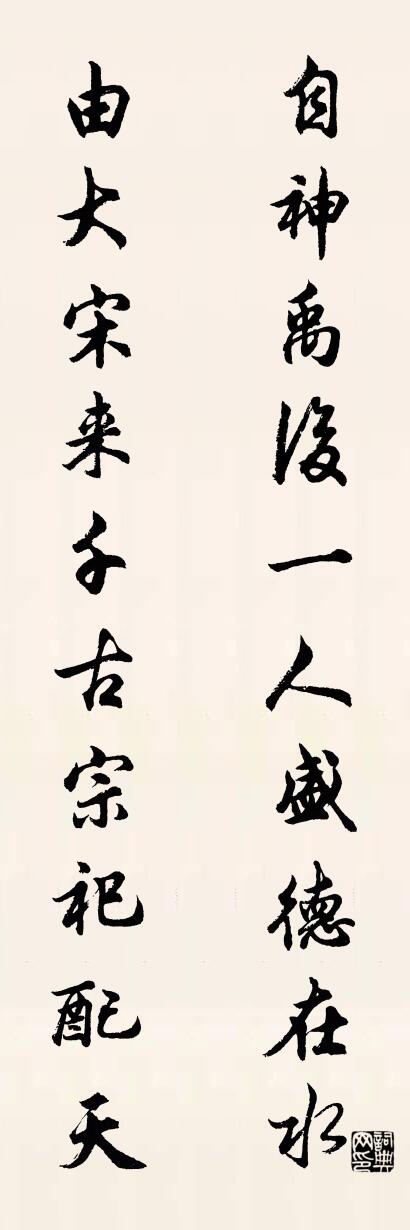 自神禹後一人盛德在水
由大宋来千古宗祀配天
詞典网印